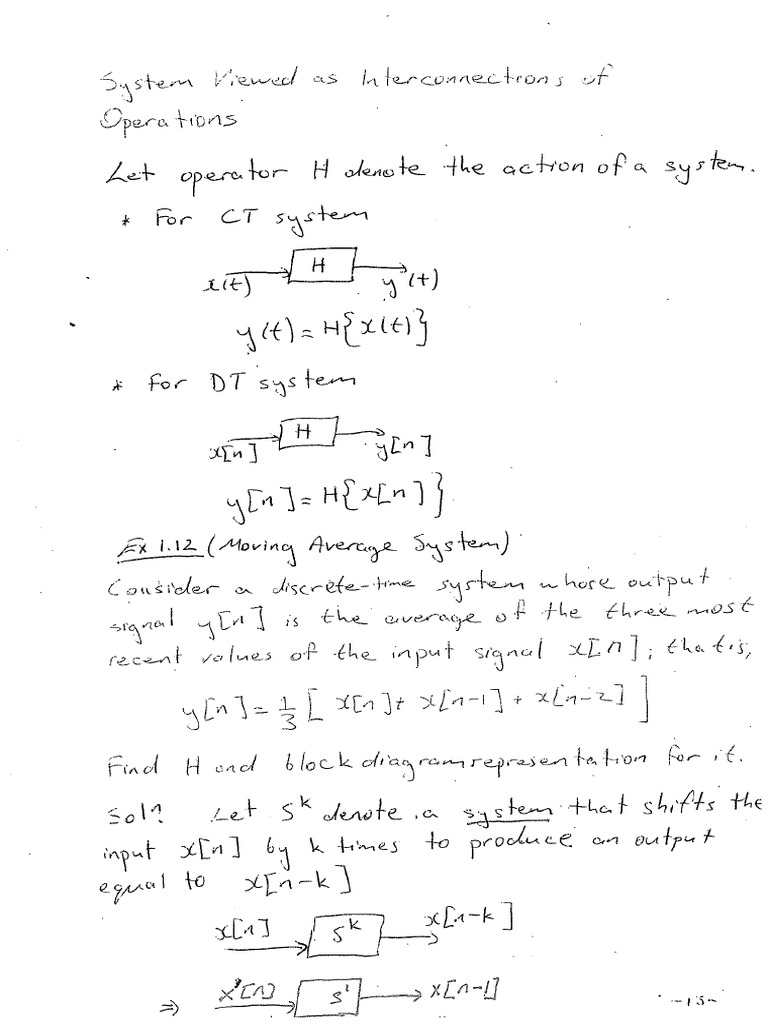 System Viewed as Interconnections of
Operations
Let operator H denote the action of a system.
* For CT system
x(t) H y(t)
y(t) = H{x(t)}
* for DT system
x[n] H y[n]
y[n] = H{x[n]}
Ex 1.12 (Moving Average System)
Consider a discrete-time system whose output
signal y[n] is the average of the three most
recent values of the input signal x[n]; that is,
y[n] = 1/3 [ x[n] + x[n-1] + x[n-2] ]
Find H and block diagram representation for it.
Sol? Let S^k denote a system that shifts the
input x[n] by k times to produce an output
equal to x[n-k]
x[n] S^k x[n-k]
⇒ x[n] S^1 x[n-1]
-15-